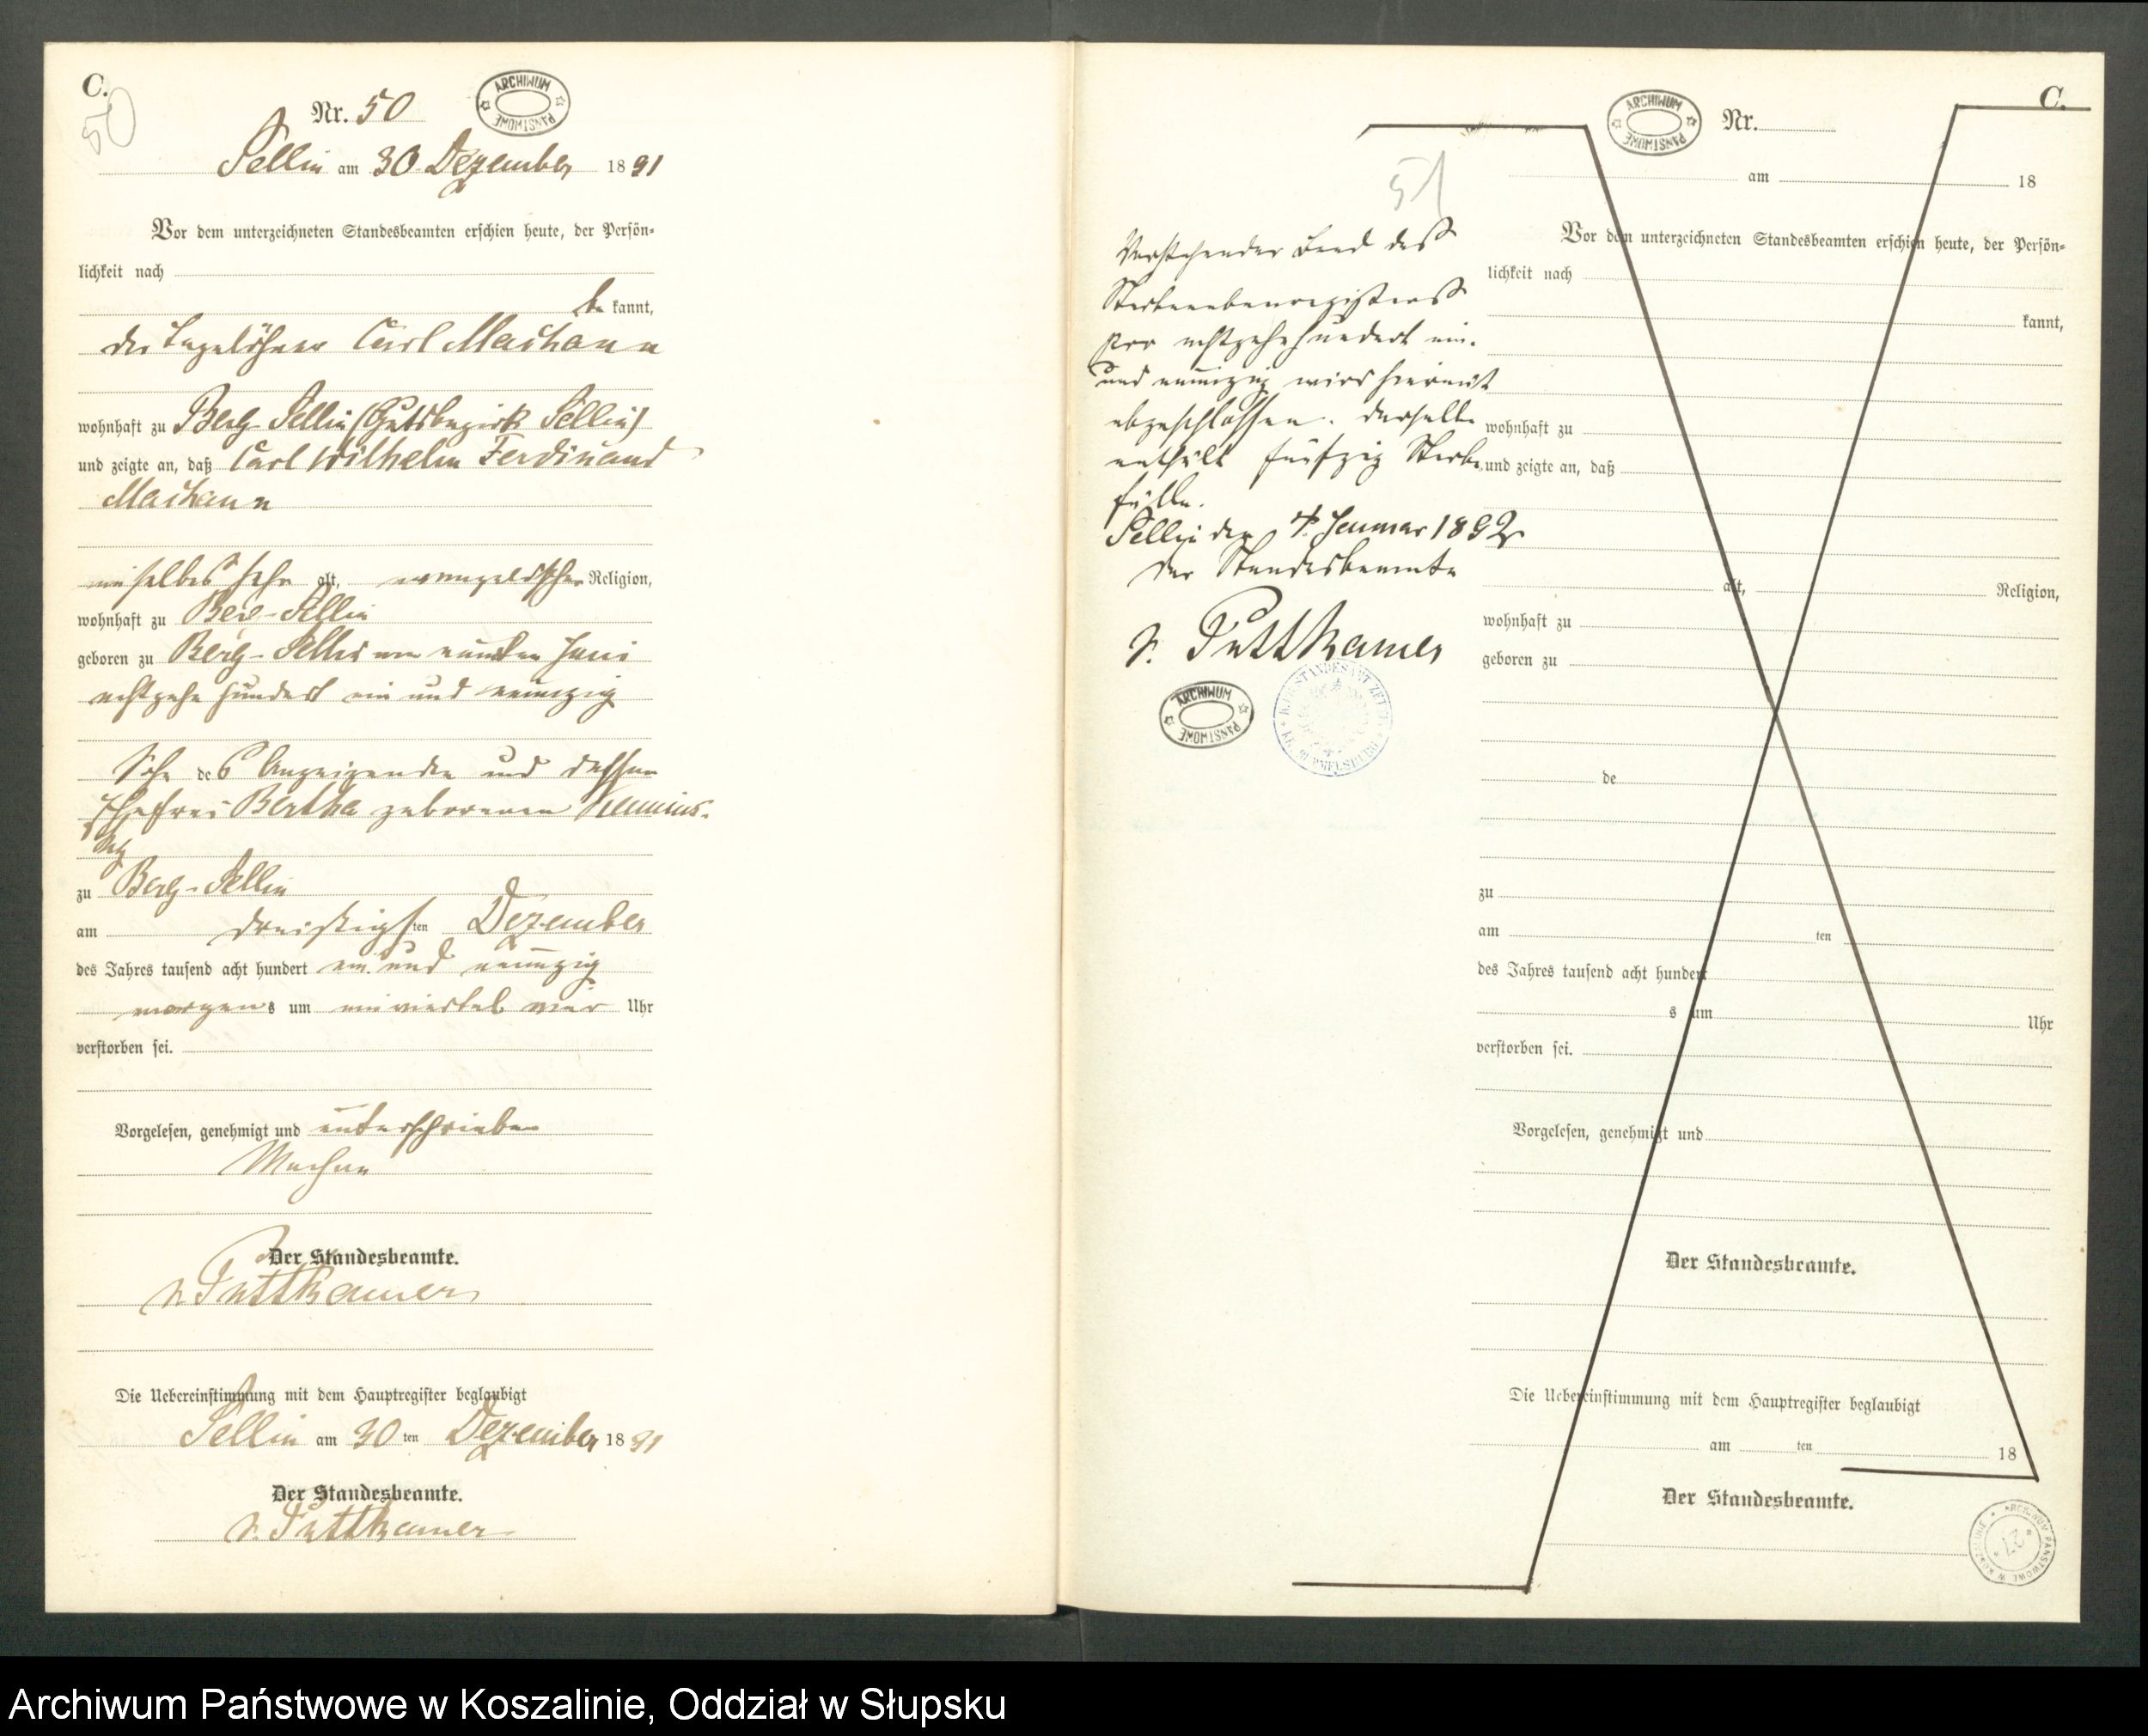 C.
50
Nr. 50
ARCHIWUM PAŃSTWOWE
Sellin am 30. Dezember 1891
Vor dem unterzeichneten Standesbeamten erschien heute, der Persön-
lichkeit nach
be kannt,
der Tagelöhner Carl Machann
wohnhaft zu Berg-Sellin (Gutsbezirk Sellin)
und zeigte an, daß Carl Wilhelm Ferdinand
Machann
ein halbes Jahr alt, evangelischer Religion,
wohnhaft zu Berg-Sellin
geboren zu Berg-Sellin am Juni
achtzehn hundert ein und neunzig
Sohn des Anzeigenden und dessen
Ehefrau Bertha geborenen
zu Berg-Sellin
am dreißigsten Dezember
des Jahres tausend acht hundert ein und neunzig
morgens um ein viertel vier Uhr
verstorben sei.
Vorgelesen, genehmigt und unterschrieben
Machan
Der Standesbeamte.
v. Puttkamer
Die Uebereinstimmung mit dem Hauptregister beglaubigt
Sellin am 30 ten Dezember 1891
Der Standesbeamte.
v. Puttkamer
51
Vorstehender Band des
Sterbenebenregisters
pro achtzehnhundert ein-
und neunzig wird hiermit
abgeschlossen. Derselbe
enthält fünfzig Sterbe
fälle.
Sellin den 4. Januar 1892
Der Standesbeamte
v. Puttkamer
ARCHIWUM PAŃSTWOWE
C.
ARCHIWUM PAŃSTWOWE
Nr.
am 18
Vor dem unterzeichneten Standesbeamten erschien heute, der Persön-
lichkeit nach
kannt,
wohnhaft zu
und zeigte an, daß
alt, Religion,
wohnhaft zu
geboren zu
de
zu
am ten
des Jahres tausend acht hundert
s um Uhr
verstorben sei.
Vorgelesen, genehmigt und
Der Standesbeamte.
Die Uebereinstimmung mit dem Hauptregister beglaubigt
am ten 18
Der Standesbeamte.
Archiwum Państwowe w Koszalinie, Oddział w Słupsku